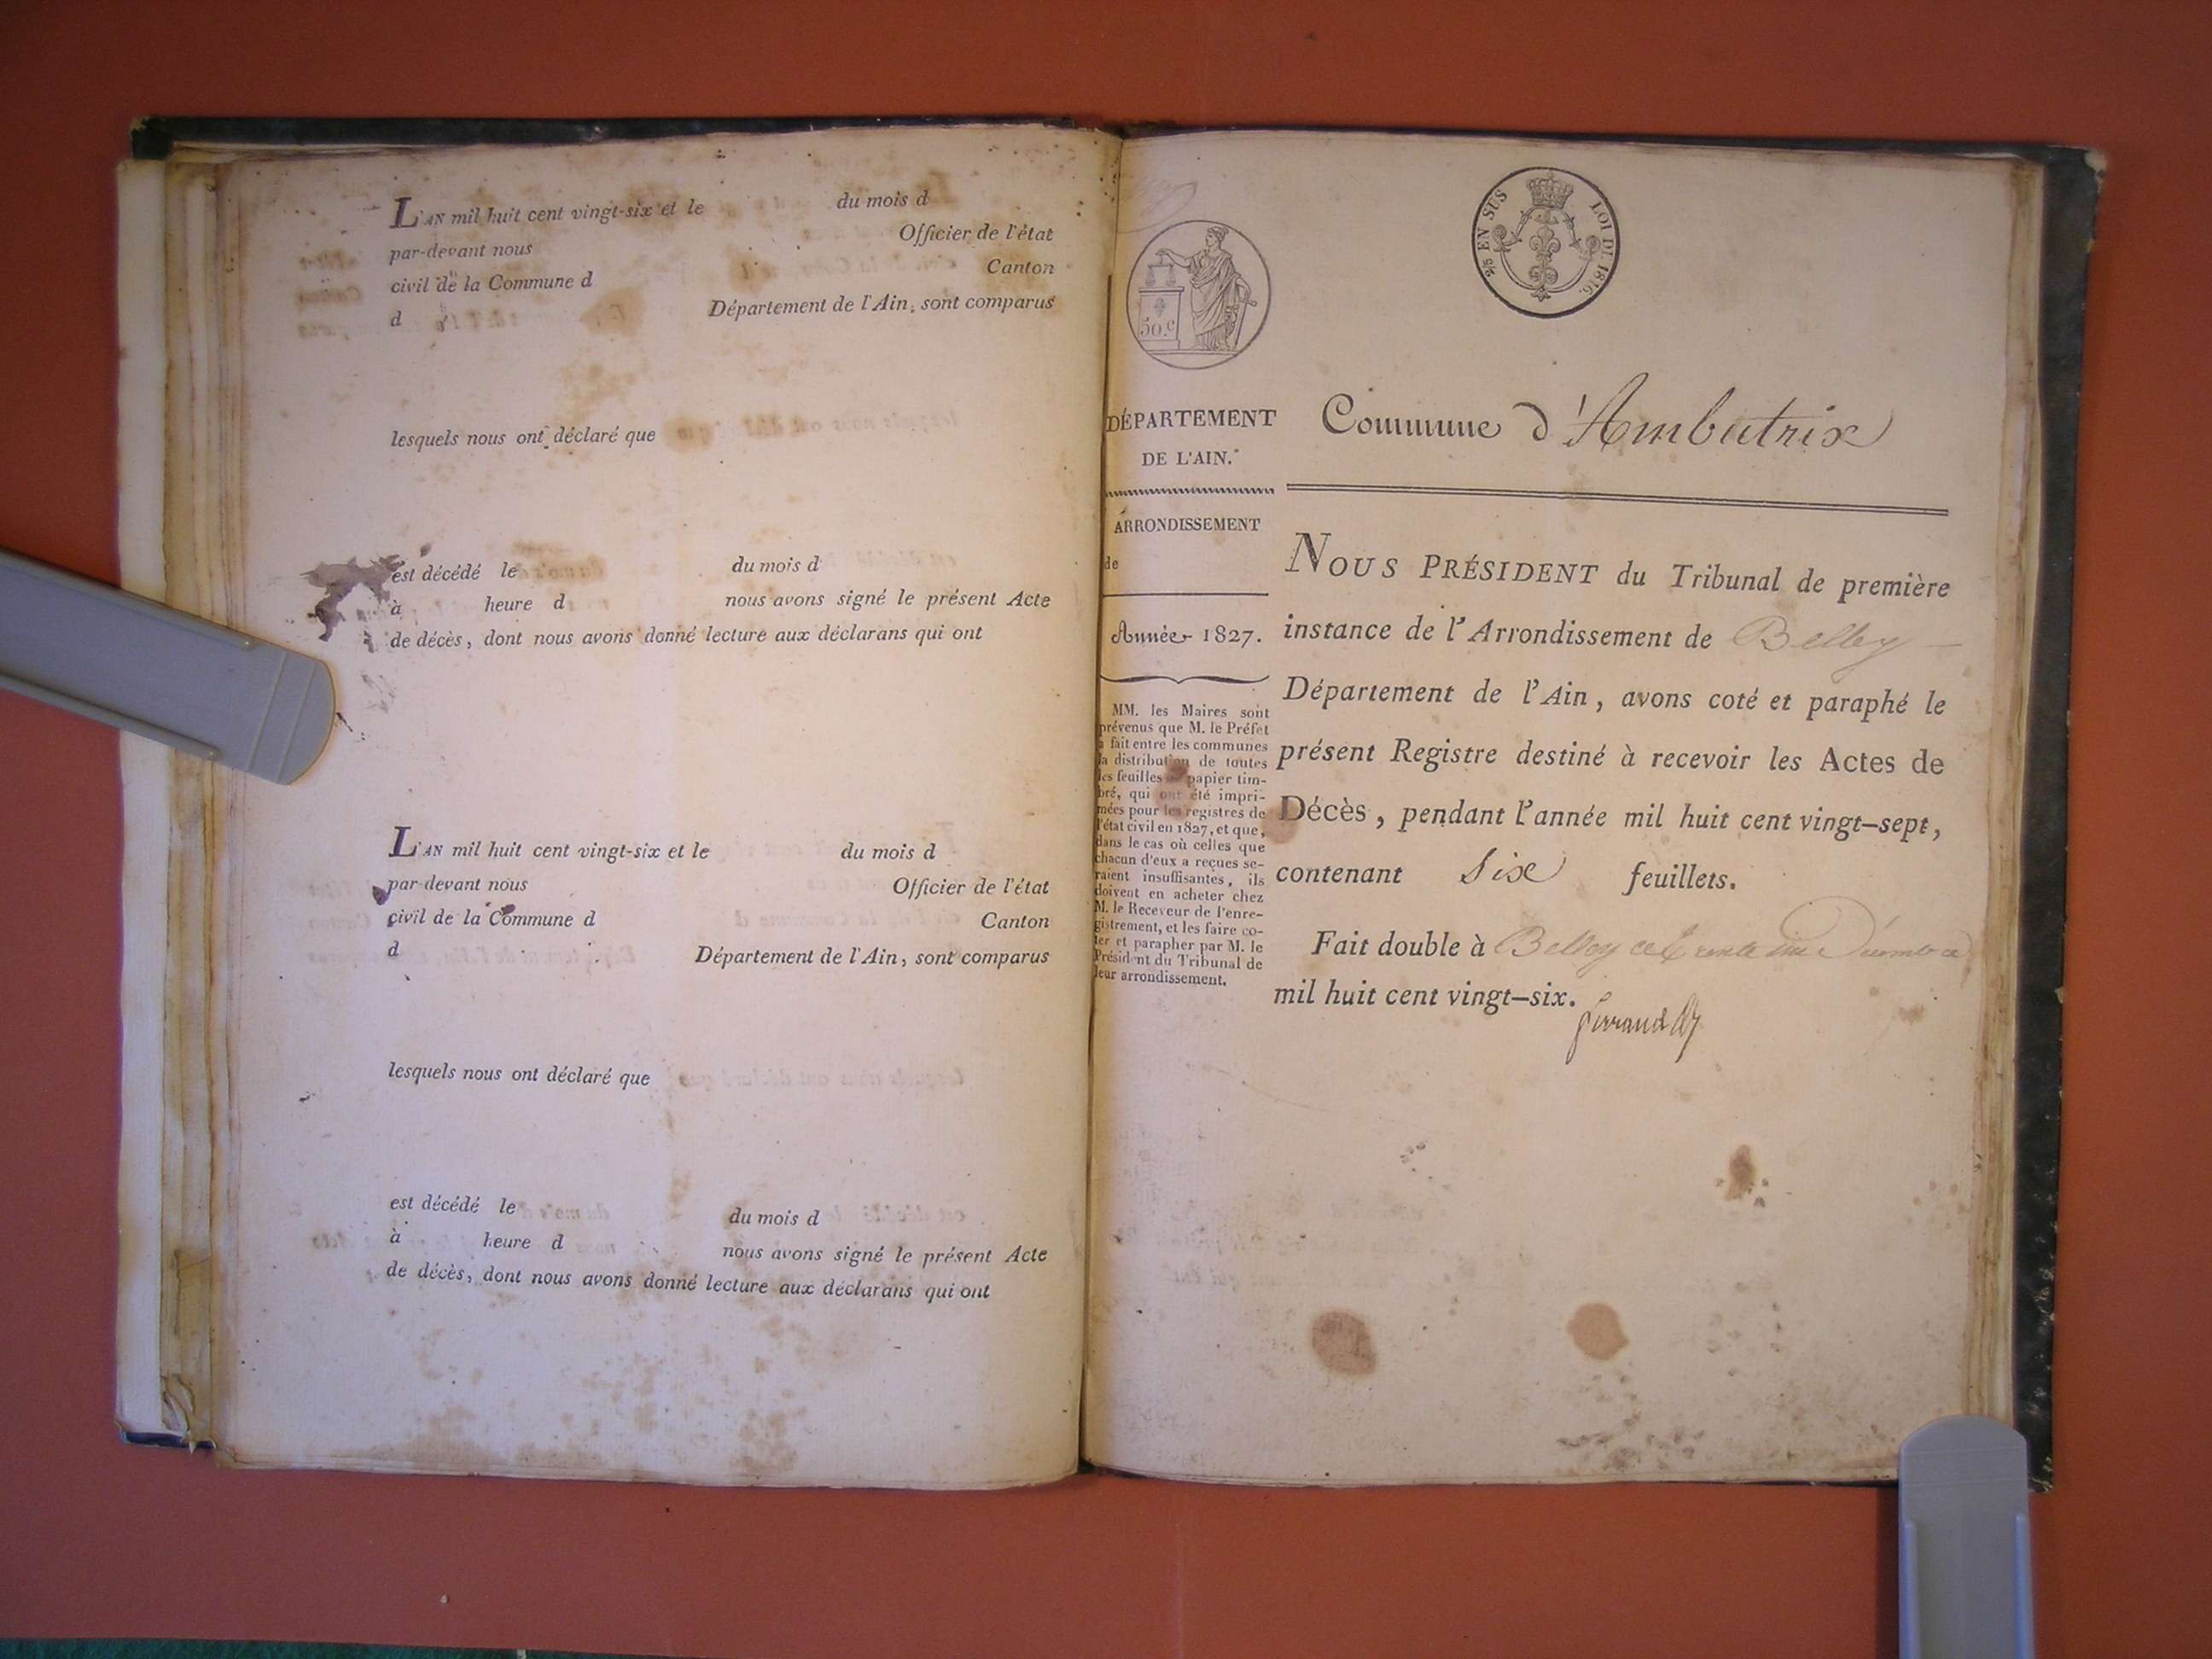 L'AN mil huit cent vingt-six et le du mois d
par-devant nous Officier de l'état
civil de la Commune d Canton
d Département de l'Ain, sont comparus
lesquels nous ont déclaré que
est décédé le du mois d
à heure d nous avons signé le présent Acte
de décès, dont nous avons donné lecture aux déclarans qui ont
L'AN mil huit cent vingt-six et le du mois d
par-devant nous Officier de l'état
civil de la Commune d Canton
d Département de l'Ain, sont comparus
lesquels nous ont déclaré que
est décédé le du mois d
à heure d nous avons signé le présent Acte
de décès, dont nous avons donné lecture aux déclarans qui ont
50.c
2/5 EN SUS LOI DE 1816.
DÉPARTEMENT
DE L'AIN.
ARRONDISSEMENT
de
Année 1827.
MM. les Maires sont
prévenus que M. le Préfet
a fait entre les communes
la distribution de toutes
les feuilles papier tim-
bré, qui ont été impri-
mées pour les registres de
l'état civil en 1827, et que,
dans le cas où celles que
chacun d'eux a reçues se-
raient insuffisantes, ils
doivent en acheter chez
M. le Receveur de l'enre-
gistrement, et les faire co-
ter et parapher par M. le
Président du Tribunal de
leur arrondissement.
Commune d'Ambutrix
NOUS PRÉSIDENT du Tribunal de première
instance de l'Arrondissement de Belley
Département de l'Ain, avons coté et paraphé le
présent Registre destiné à recevoir les Actes de
Décès, pendant l'année mil huit cent vingt-sept,
contenant Six feuillets.
Fait double à Belley ce trente un Décembre
mil huit cent vingt-six.